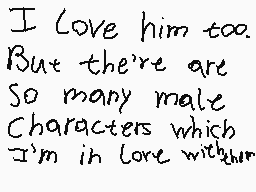 I love him too.
But the're are
so many male
characters which
I'm in love with them